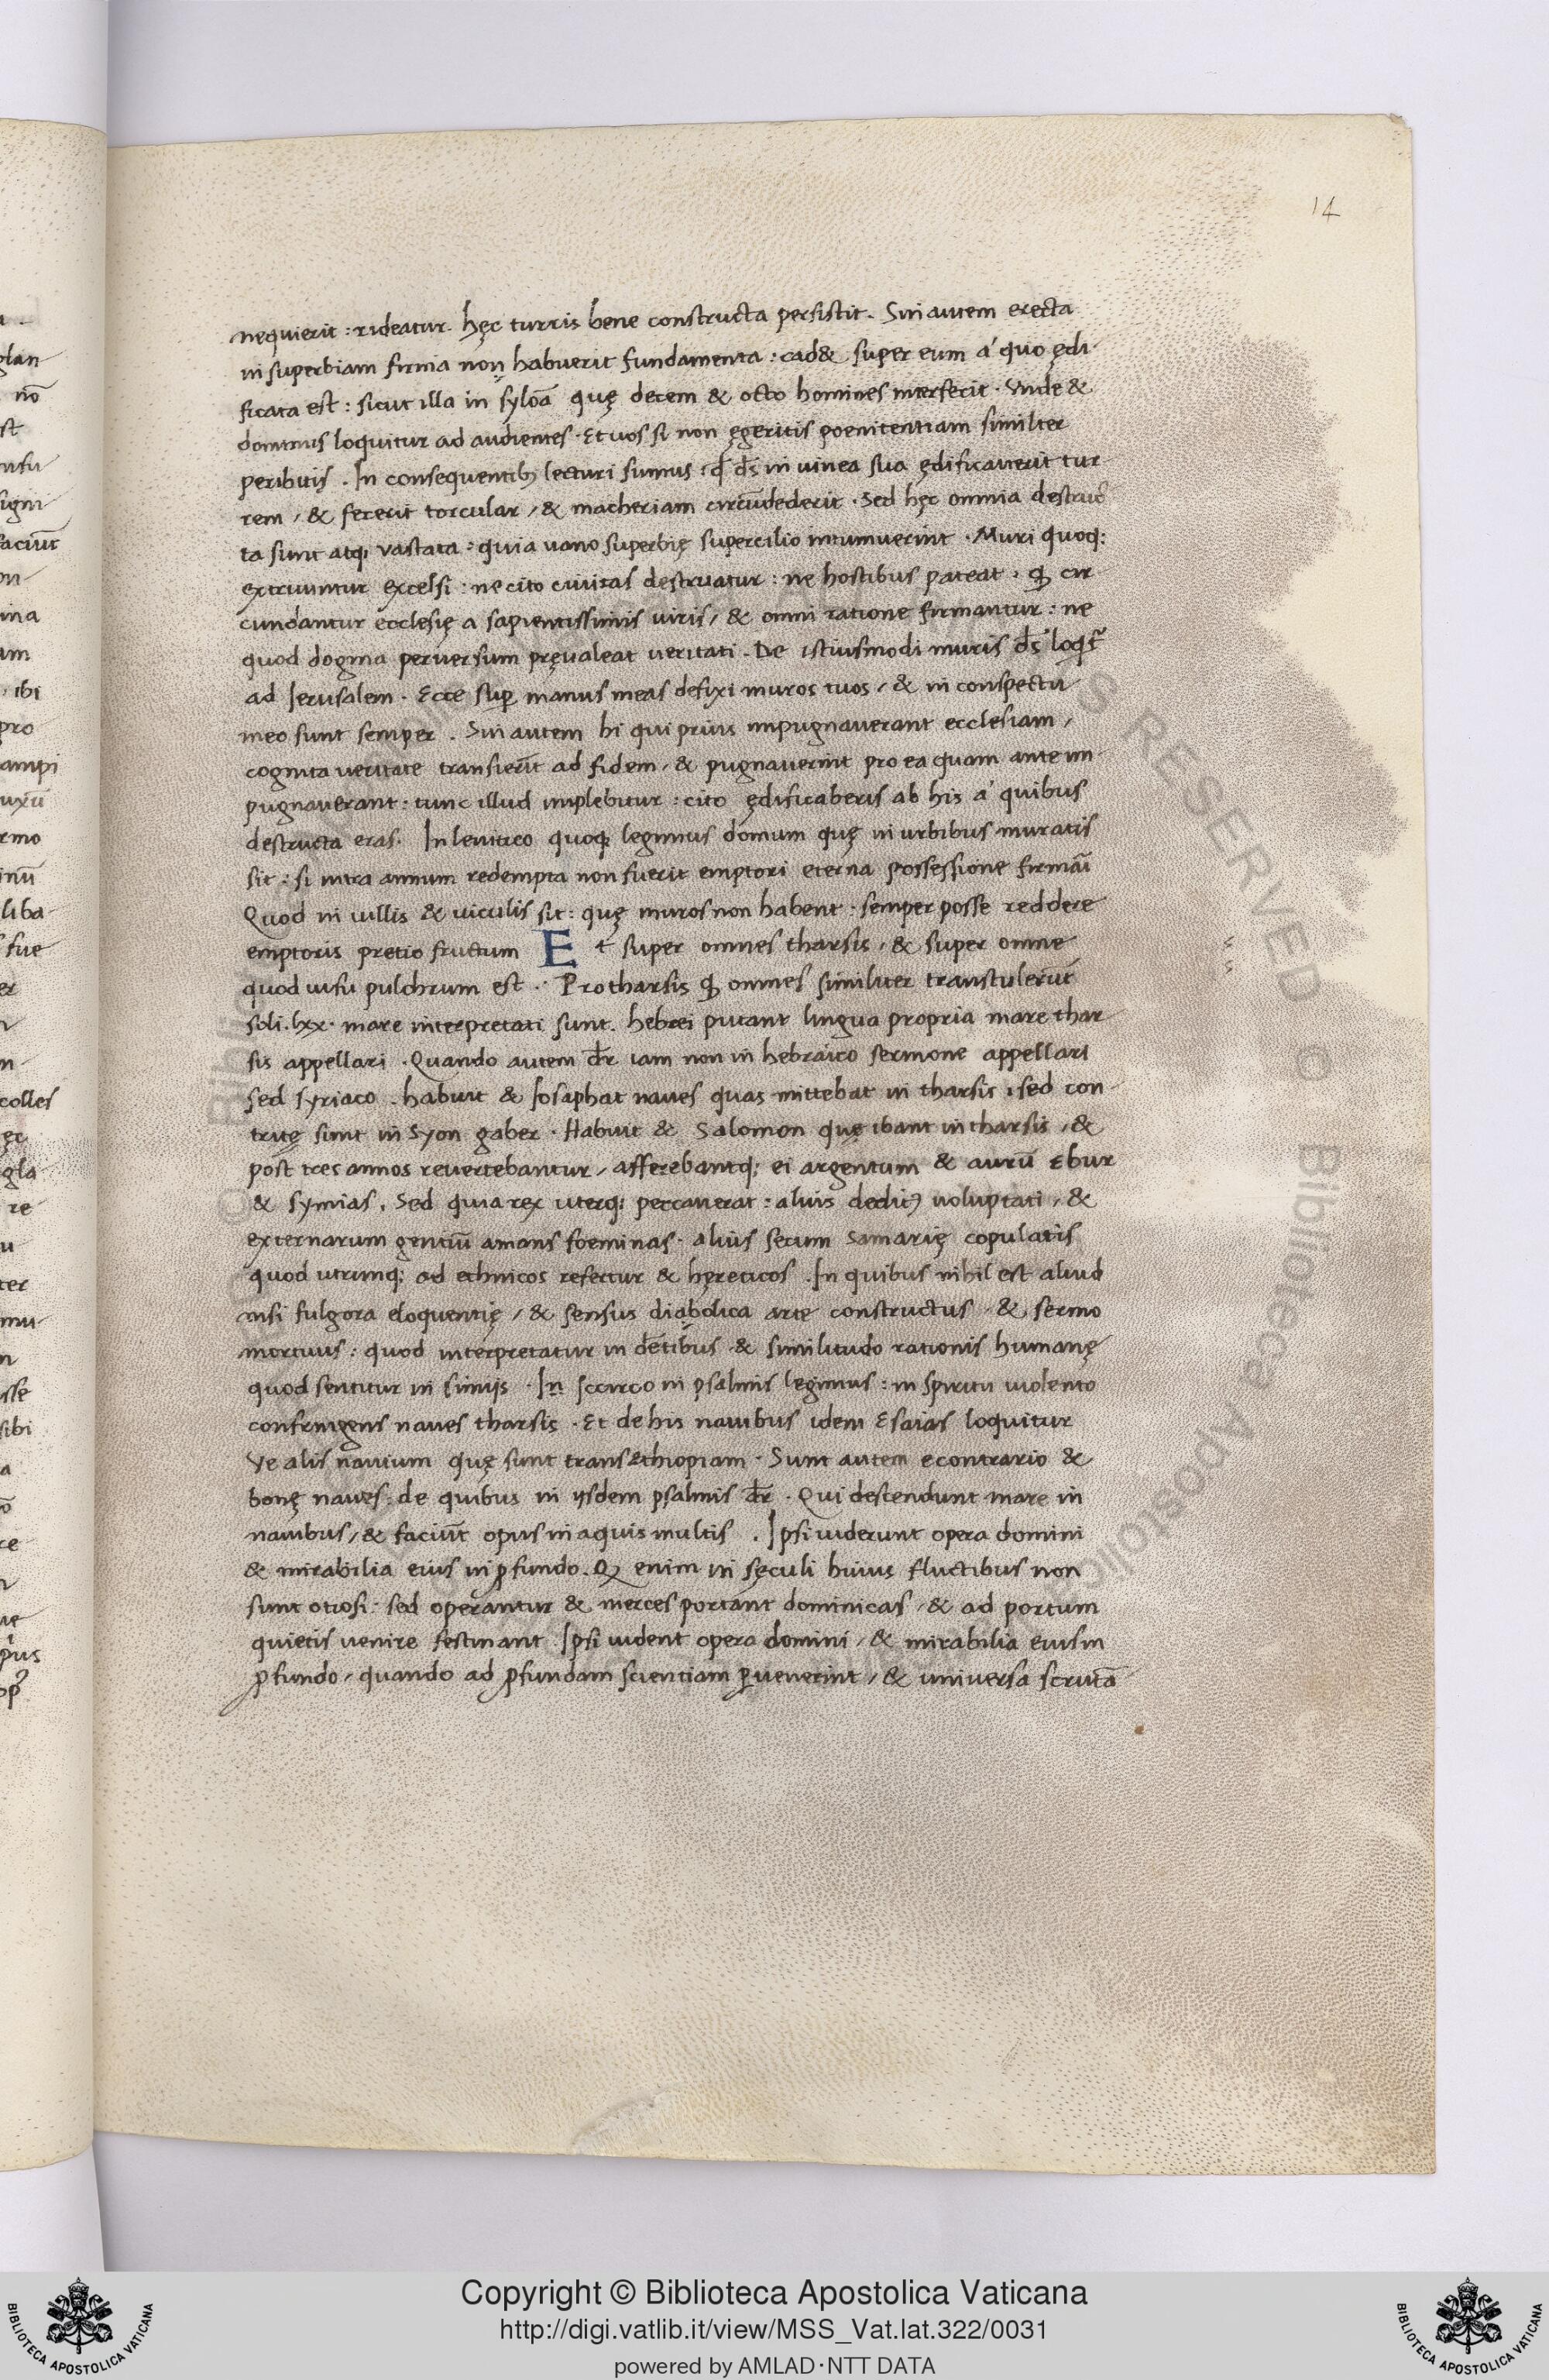 14
nequierit : rideatur. hęc turris bene constructa persistit. Sin autem erecta
in superbiam firma non habuerit fundamenta : cad& super eum á quo ędi
ficata est : sicut illa in syloā quę decem & octo homines interfecit. Vnde &
dominus loquitur ad audientes. Et uos si non ęgeritis poenitentiam similiter
peribitis. In consequentibꝫ lecturi sumus, ꝙ d̄s in uinea sua ędificauerit tur
rem, & fecerit torcular, & maceriam circūdederit. Sed hęc omnia destruc
ta sunt atq; vastata : quia uano superbię supercilio intumuerint. Muri quoq;
extruuntur excelsi : ne cito ciuitas destruatur : ne hostibus pateat. ꝙ cir
cundantur ecclesię a sapientissimis uiris, & omni ratione firmantur : ne
quod dogma peruersum pręualeat ueritati. De istiusmodi muris d̄s loqt̃
ad Jerusalem. Ecce suꝑ manus meas defixi muros tuos, & in conspectu
meo sunt semper. Sin autem hi qui prius impugnauerant ecclesiam,
cognita ueritate transierīt ad fidem, & pugnauerint pro ea quam ante im
pugnauerant : tunc illud implebitur : cito ędificaberis ab his á quibus
destructa eras. In leuitico quoq; legimus domum quę in urbibus muratis
sit : si intra annum redempta non fuerit emptori eterna possessione firmāi
Quod in uillis & uiculis sit : quę muros non habent : semper posse reddere
emptoris pretio fructum Et super omnes tharsis, & super omne
quod uisu pulchrum est. Pro tharsis ꝙ omnes similiter transtulerūt
soli .lxx. mare interpretati sunt. hebrei putant lingua propria mare thar
sis appellari. Quando autem dr̄ iam non in hebraico sermone appellari
sed syriaco. habuit & Josaphat naues quas mittebat in tharsis, sed con
tritę sunt in Syon gaber. Habuit & Salomon quę ibant in tharsis, &
post tres annos reuertebantur, afferebantq; ei argentum & aurū Ebur
& symias. Sed quia rex uterq; peccauerat : alius deditꝰ uoluptati, &
externarum gentiū amans foeminas. alius secum Samarię copulatis
quod utrunq; ad ethnicos refertur & hęreticos. In quibus nihil est aliud
nisi fulgora eloquentię, & sensus diabolica arte constructus, & sermo
mortuus : quod interpretatur in dētibus & similitudo rationis humanę
quod sentitur in simijs. In Iccirco in psalmis legimus : in spiritu uiolento
confringens naues tharsis. Et de his nauibus idem Esaias loquitur
Ve alis nauium quę sunt trans &thiopiam. Sunt autem econtrario &
bonę naues : de quibus in ijsdem psalmis dr̄. Qui descendunt mare in
nauibus, & faciūt opus in aquis multis. Ipsi uiderunt opera domini
& mirabilia eius in ꝓfundo. Qꝫ enim in sęculi huius fluctibus non
sunt otiosi : sed operantur & merces portant dominicas, & ad portum
quietis uenire festinant Ipsi uident opera domini, & mirabilia eius in
ꝓfundo, quando ad ꝓfundam scientiam ꝑuenerint, & uniuersa scrutā
Copyright © Biblioteca Apostolica Vaticana
http://digi.vatlib.it/view/MSS_Vat.lat.322/0031
powered by AMLAD·NTT DATA
BIBLIOTECA APOSTOLICA VATICANA
BIBLIOTECA APOSTOLICA VATICANA